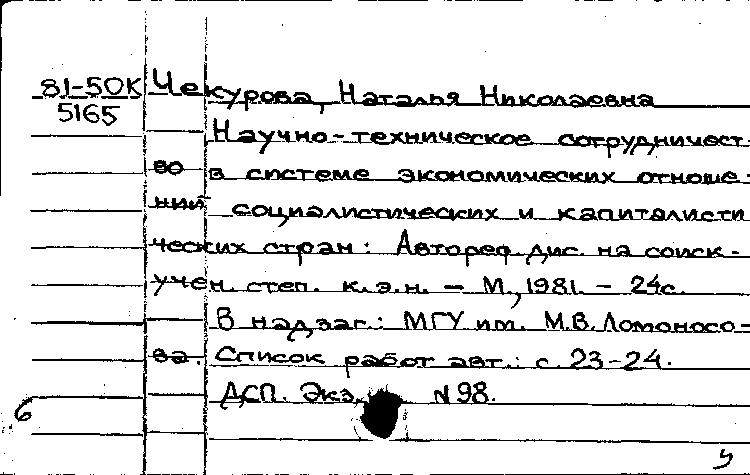 81-50К Чекурова, Наталья Николаевна
5165
Научно-техническое сотрудничест-
во в системе экономических отноше-
ний социалистических и капиталисти
ческих стран: Автореф. дис. на соиск.
учен. степ. к.э.н. – М., 1981. – 24с.
В надзаг.: МГУ им. М.В. Ломоносо-
ва. Список работ авт.: с. 23-24.
ДСП. Экз. N 98.
6